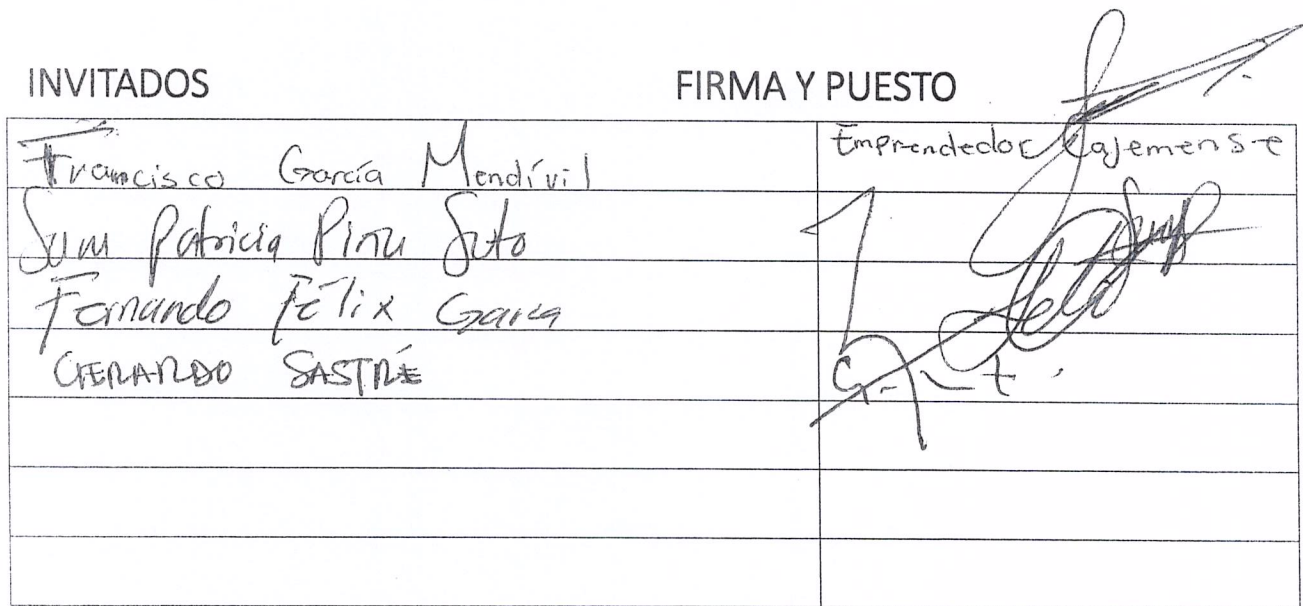 INVITADOS FIRMA Y PUESTO
Francisco García Mendívil Emprendedor Cajemense
Patricia
Fernando Félix García
GERARDO SASTRÉ